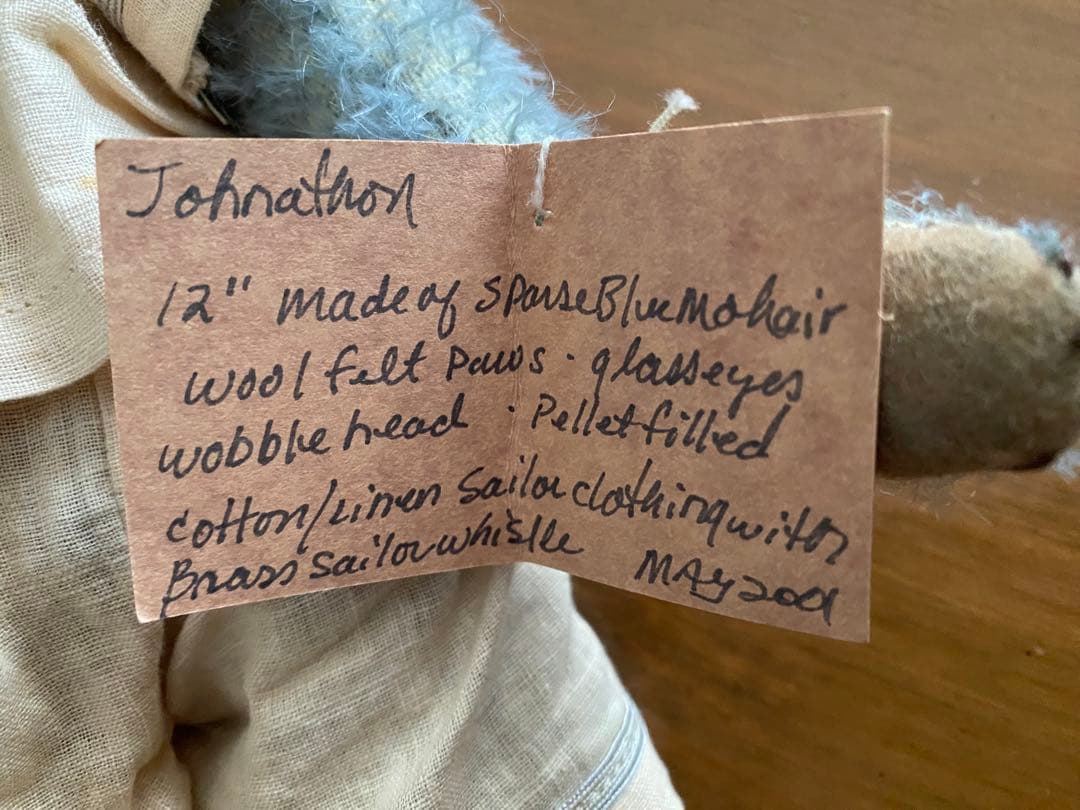 Johnathon
12" made of Sparse Blue Mohair
wool felt paws · glass eyes
wobble head · Pellet filled
cotton/Linen Sailor clothing with
Brass Sailor whistle MAy 2001